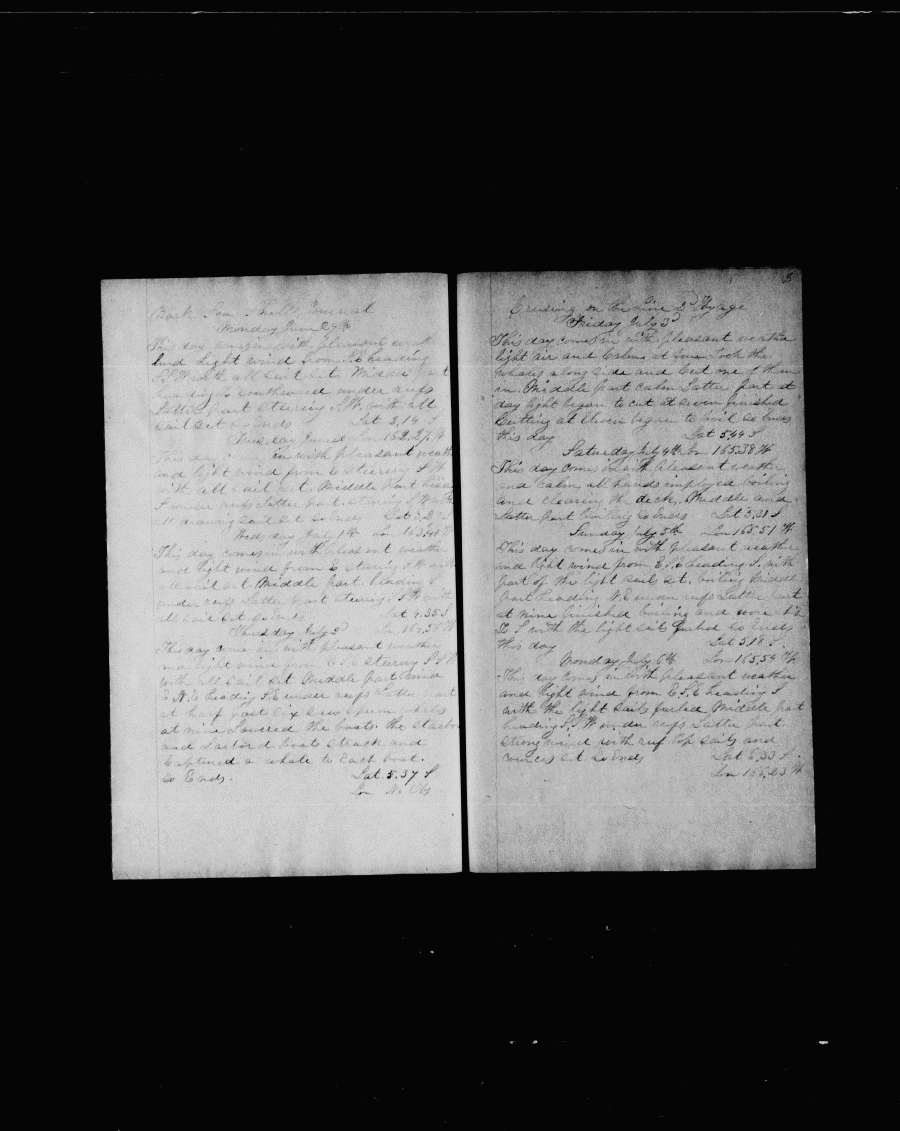 Bark Sea Shell Journal
Monday June 29th
This day comes in with pleasant weath
and light wind from N.E heading
S.S.W with all sail set Middle part
heading to Southward under reefs
Latter part Steering S.W. with all
sail set so Ends Lat 3,14 S
Tuesday June 30 Lon 162.27 W
This day comes in with pleasant weath
and light wind from E steering S W
with all sail set Middle Part
S under reefs Latter part steering S W
all drawing sail set so Ends Lat 3,2 S
Wedsday July 1th Lon 163,41 W
This day comes in with pleasant weather
and light wind from E staring S W with
all sail set Middle part heading S
under reefs Latter part steering S S W with
all sail set so Ends Lat 4.35 S
Thursday July 2d Lon 164,38 W
This day comes in with pleasant weather
and light winds from E S E steering S S W
with all sail set Middle part wind
E N.E heading S.E under reefs Latter part
at half past six saw Sperm whales
at nine Lowered the boats the starbor
and Larbord boats struck and
Captured a whale to Each boat.
So Ends. Lat. 5.37 S
Lon No Obs
5
Cruising on the Line 2d Voyage
Friday July 3d
This day comes in with pleasant weather
light air and Calms at four Took the
whales along side and Cut one of them
in. Middle part calm Latter part at
day light began to cut at seven finished
Cutting at Eleven began to boil so Ends
this day Lat 5.44 S
Saturday July 4th Lon 165.38 W
This day comes in with pleasant weather
and calm all hands employed boiling
and clearing up deck. Middle and
Latter part boiling so Ends Lat 5.21 S
Sunday July 5th Lon 165,51 W
This day comes in with pleasant weather
and light wind from E S E heading S. with
part of the light sails set. boiling Middle
part heading N.E under reefs Latter part
at nine finished boiling and wore ship
To S with the light sails furled so Ends
this day Lat 5 18 S.
Monday July 6th Lon 165,54 W.
This day comes in with pleasant weather
and light wind from E S E heading S
with the light sails furled Middle part
heading S.S W under reefs Latter part
strong wind with reef top sails and
courses set. so Ends Lat 6,33 S
Lon 166,23 W